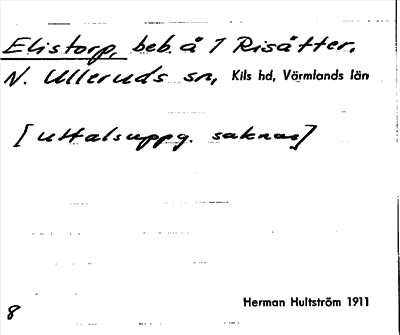 Elistorp, beb. å 1 Risätter,
N. Ulleruds sn, Kils hd, Värmlands län
[uttalsuppg. saknas]
Herman Hultström 1911
8